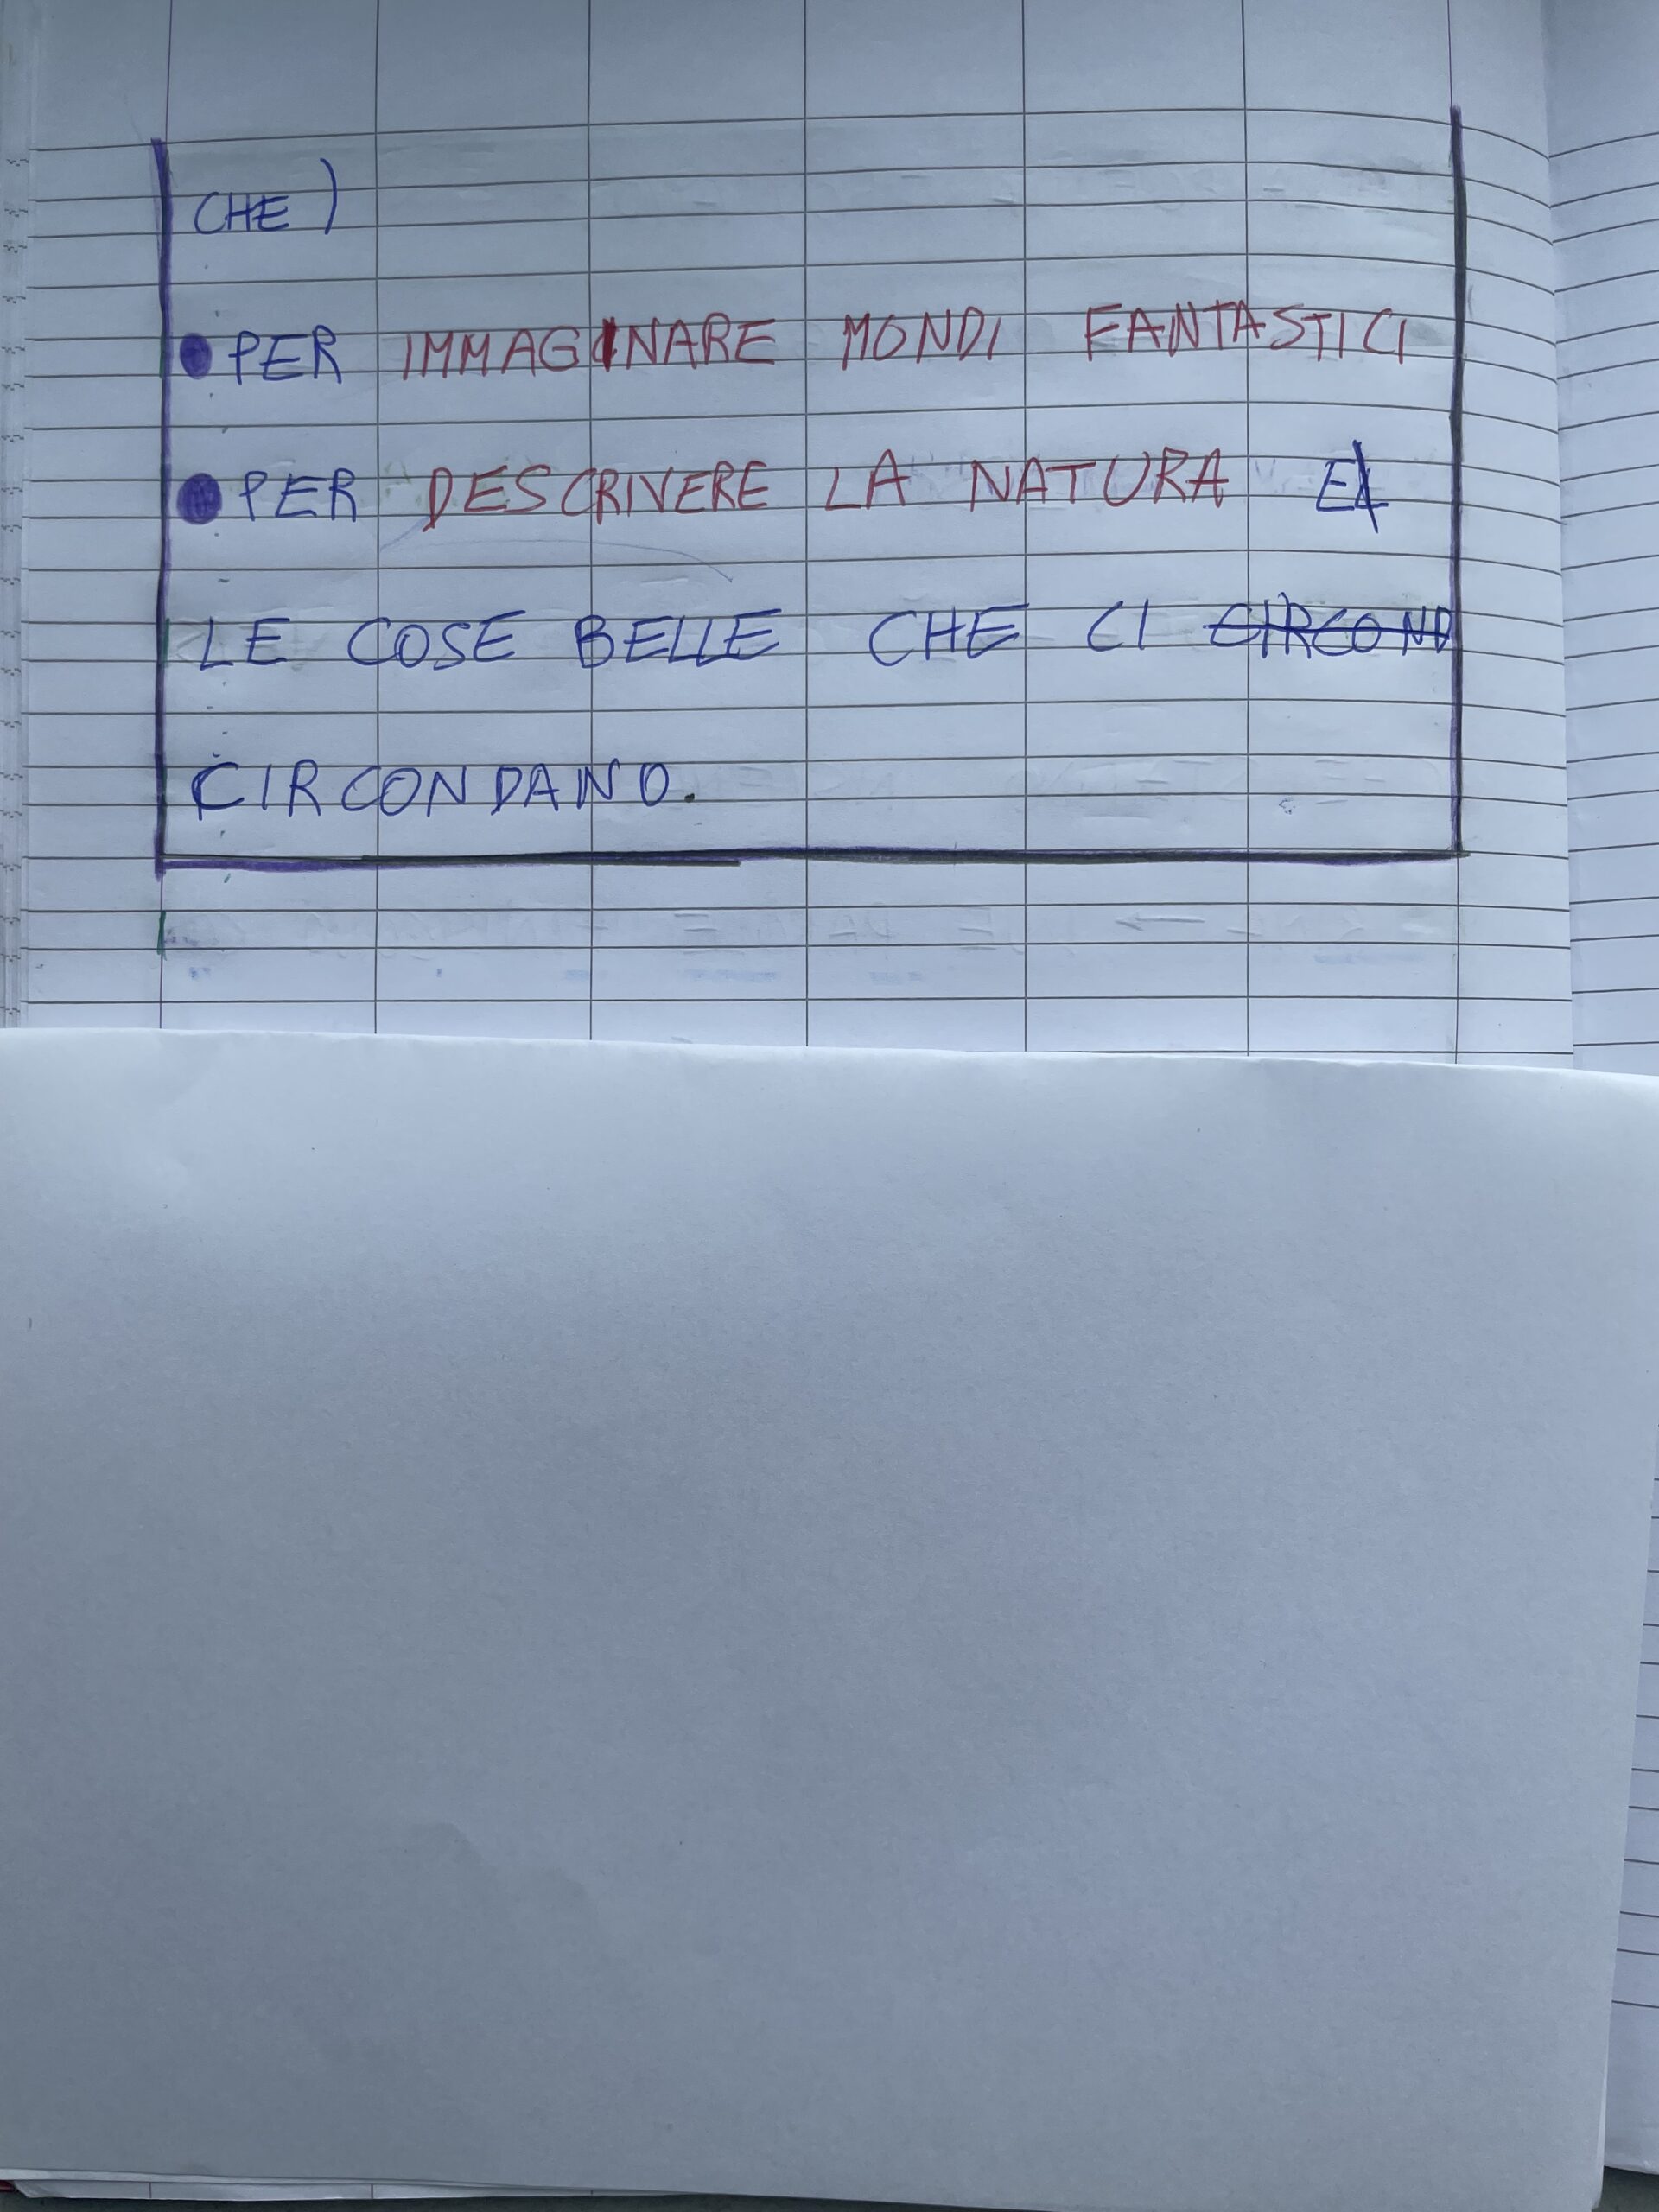 CHE)
● PER IMMAGINARE MONDI FANTASTICI
● PER DESCRIVERE LA NATURA E
LE COSE BELLE CHE CI CIRCOND
CIRCONDANO.